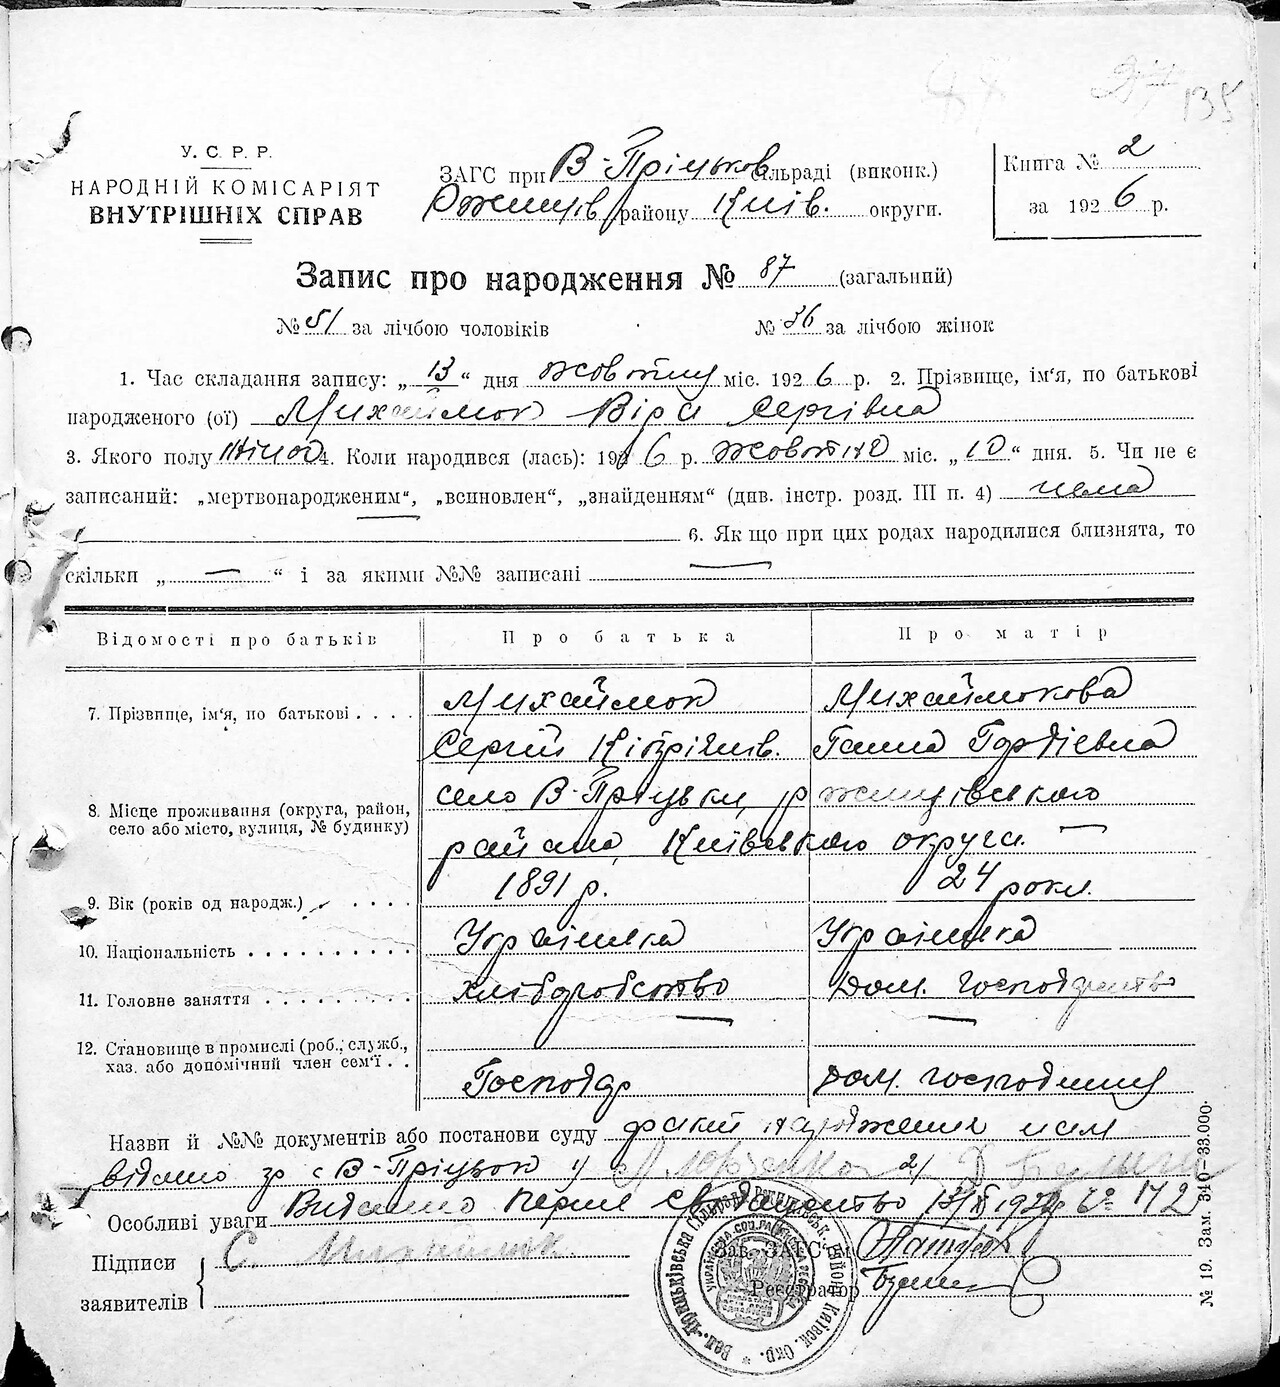 27 135
У. С. Р. Р.
НАРОДНІЙ КОМІСАРІЯТ
ВНУТРІШНІХ СПРАВ
ЗАГС при В-Пріцьков сільраді (виконк.)
Ржищів району Київ. округи.
Книга № 2
за 1926 р.
Запис про народження № 87 (загальний)
№ 51 за лічбою чоловіків № 36 за лічбою жінок
1. Час складання запису: „ 13 “ дня жовтня міс. 1926 р. 2. Прізвище, ім‘я, по батькові
народженого (ої) Михаймюк Віра Сергівна
3. Якого полу жіноч 4. Коли народився (лась): 1926 р. жовтня міс. „ 10 “ дня. 5. Чи не є
записаний: „мертвонародженим“, „всиновлен“, „знайденням“ (див. інстр. розд. III п. 4) нема
6. Як що при цих родах народилися близнята, то
скільки „ — “ і за якими №№ записані —
Відомості про батьків Про батька Про матір
7. Прізвище, ім‘я, по батькові . . . . Михаймюк Михаймюкова
Сергій Кіпріянів. Ганна Гордіевна
8. Місце проживання (округа, район,
село або місто, вулиця, № будинку)
село В-Пріцьки, ржищівського
района, Київського округа. —
9. Вік (років од народж.) . . . . 1891 р. 24 роки.
10. Національність . . . . . . . . . . Українка Українка
11. Головне заняття . . . . . . . . . хліборобство Дом. господарство
12. Становище в промислі (роб., служб.,
хаз. або допомічний член сем‘ї . .
Господар дом. господиня
Назви й №№ документів або постанови суду факт народження нам
відомо гр с В-Пріцьок 1) 2) Д
Особливі уваги Видано перше свідоцтво 13/X 192 р № 172
Підписи
заявителів
С. Михаймюк
Зав. ЗАГС‘ом
Реєстратор
Вел.-Прицьківська Сільрада Ржищівськ. району Київск. Окр.
№ 19. Зам. 340—33.000.